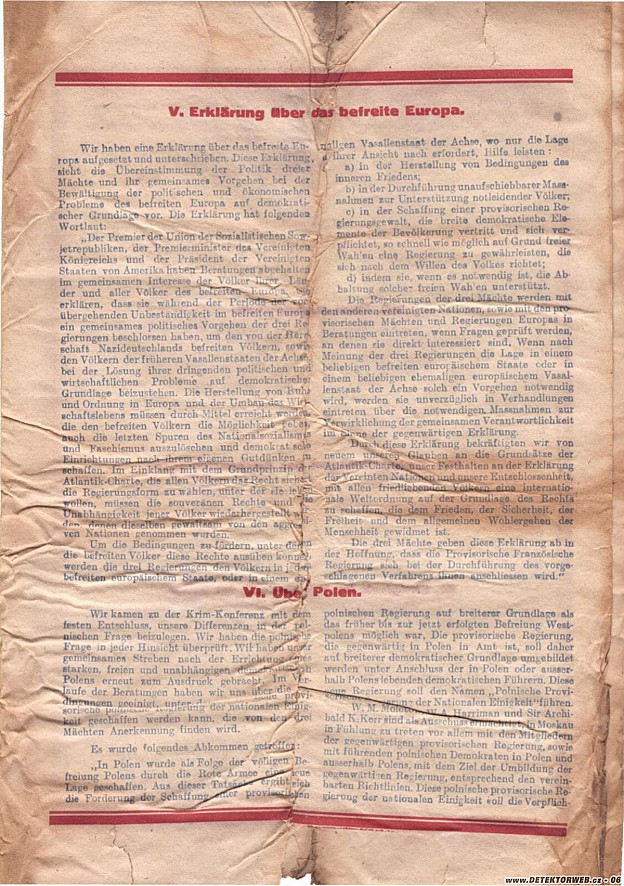 V. Erklärung über das befreite Europa.
Wir haben eine Erklärung über das befreite Eu-
ropa aufgesetzt und unterschrieben. Diese Erklärung
sieht die Übereinstimmung der Politik dreier
Mächte und ihr gemeinsames Vorgehen bei der
Bewältigung der politischen und ökonomischen
Probleme des befreiten Europa auf demokrati-
scher Grundlage vor. Die Erklärung hat folgenden
Wortlaut:
„Der Premier der Union der Sozialistischen Sow-
jetrepubliken, der Premierminister des Vereinigten
Königreichs und der Präsident der Vereinigten
Staaten von Amerika haben Beratungen abgehalten
im gemeinsamen Interesse der Völker ihrer Län-
der und aller Völker des befreiten Europa. Sie
erklären, dass sie während der Periode der vor-
übergehenden Unbeständigkeit im befreiten Europa
ein gemeinsames politisches Vorgehen der drei Re-
gierungen beschlossen haben, um den von der Herr-
schaft Nazideutschlands befreiten Völkern, sowie
den Völkern der früheren Vasallenstaaten der Achse,
bei der Lösung ihrer dringenden politischen und
wirtschaftlichen Probleme auf demokratischer
Grundlage beizustehen. Die Herstellung von Ruhe
und Ordnung in Europa und der Umbau des Wirt-
schaftslebens müssen durch Mittel erreicht werden,
die den befreiten Völkern die Möglichkeit geben,
auch die letzten Spuren des Nationalsozialismus
und Faschismus auszulöschen und demokratische
Einrichtungen nach ihrem eigenen Gutdünken zu
schaffen. Im Einklang mit dem Grundprinzip der
Atlantik-Charte, die allen Völkern das Recht sichert
die Regierungsform zu wählen, unter der sie leben
wollen, müssen die souveränen Rechte und die
Unabhängigkeit jener Völker wiederhergestellt wer-
den, denen dieselben gewaltsam von den aggressi-
ven Nationen genommen wurden.
Um die Bedingungen zu fördern, unter denen
die befreiten Völker diese Rechte ausüben können,
werden die drei Regierungen den Völkern in jedem
befreiten europäischen Staate, oder in einem ehe-
maligen Vasallenstaat der Achse, wo nur die Lage
ihrer Ansicht nach erfordert, Hilfe leisten:
a) in der Herstellung von Bedingungen des
inneren Friedens;
b) in der Durchführung unaufschiebbarer Mass-
nahmen zur Unterstützung notleidender Völker;
c) in der Schaffung einer provisorischen Re-
gierungsgewalt, die breite demokratische Ele-
mente der Bevölkerung vertritt und sich ver-
pflichtet, so schnell wie möglich auf Grund freier
Wahlen eine Regierung zu gewährleisten, die
sich nach dem Willen des Volkes richtet;
d) indem sie, wenn es notwendig ist, die Ab-
haltung solcher freien Wahlen unterstützt.
Die Regierungen der drei Mächte werden mit
den anderen vereinigten Nationen, sowie mit den pro-
visorischen Mächten und Regierungen Europas in
Beratungen eintreten, wenn Fragen geprüft werden,
an denen sie direkt interessiert sind. Wenn nach
Meinung der drei Regierungen die Lage in einem
beliebigen befreiten europäischem Staate oder in
einem beliebigen ehemaligen europäischem Vasal-
lenstaat der Achse solch ein Vorgehen notwendig
wird, werden sie unverzüglich in Verhandlungen
eintreten über die notwendigen Massnahmen zur
Verwirklichung der gemeinsamen Verantwortlichkeit
im Sinne der gegenwärtigen Erklärung.
Durch diese Erklärung bekräftigten wir von
neuem unseren Glauben an die Grundsätze der
Atlantik-Charte, unser Festhalten an der Erklärung
der Vereinten Nationen und unsere Entschlossenheit,
mit allen friedliebenden Völkern eine internatio-
nale Weltordnung auf der Grundlage des Rechts
zu schaffen, die dem Frieden, der Sicherheit, der
Freiheit und dem allgemeinen Wohlergehen der
Menschheit gewidmet ist.
Die drei Mächte geben diese Erklärung ab in
der Hoffnung, dass die Provisorische Französische
Regierung sich bei der Durchführung des vorge-
schlagenen Verfahrens ihnen anschliessen wird.“
VI. Über Polen.
Wir kamen zu der Krim-Konferenz mit dem
festen Entschluss, unsere Differenzen in der pol-
nischen Frage beizulegen. Wir haben die polnische
Frage in jeder Hinsicht überprüft. Wir haben unser
gemeinsames Streben nach der Errichtung eines
starken, freien und unabhängigen demokratischen
Polens erneut zum Ausdruck gebracht. Im Ver-
laufe der Beratungen haben wir uns über die
Bedingungen geeinigt, unter denen eine neue provi-
sorische polnische Regierung der nationalen Einig-
keit geschaffen werden kann, die von den drei
Mächten Anerkennung finden wird.
Es wurde folgendes Abkommen getroffen:
„In Polen wurde als Folge der völligen Be-
freiung Polens durch die Rote Armee eine neue
Lage geschaffen. Aus dieser Tatsache ergibt sich
die Forderung der Schaffung einer provisorischen
polnischen Regierung auf breiterer Grundlage als
das früher bis zur jetzt erfolgten Befreiung West-
polens möglich war. Die provisorische Regierung,
die gegenwärtig in Polen in Amt ist, soll daher
auf breiterer demokratischer Grundlage umgebildet
werden unter Anschluss der in Polen oder ausser-
halb Polens lebenden demokratischen Führern. Diese
neue Regierung soll den Namen „Polnische Provi-
sorische Regierung der Nationalen Einigkeit“ führen.
W. M. Molotow, W. A. Harriman und Sir Archi-
bald K. Kerr sind als Ausschuss ermächtigt, in Moskau
in Fühlung zu treten vor allem mit den Mitgliedern
der gegenwärtigen provisorischen Regierung, sowie
mit führenden polnischen Demokraten in Polen und
ausserhalb Polens, mit dem Ziel der Umbildung der
gegenwärtigen Regierung, entsprechend den verein-
barten Richtlinien. Diese polnische provisorische Re-
gierung der nationalen Einigkeit soll die Verpflich-
www.DETEKTORWEB.cz - 06